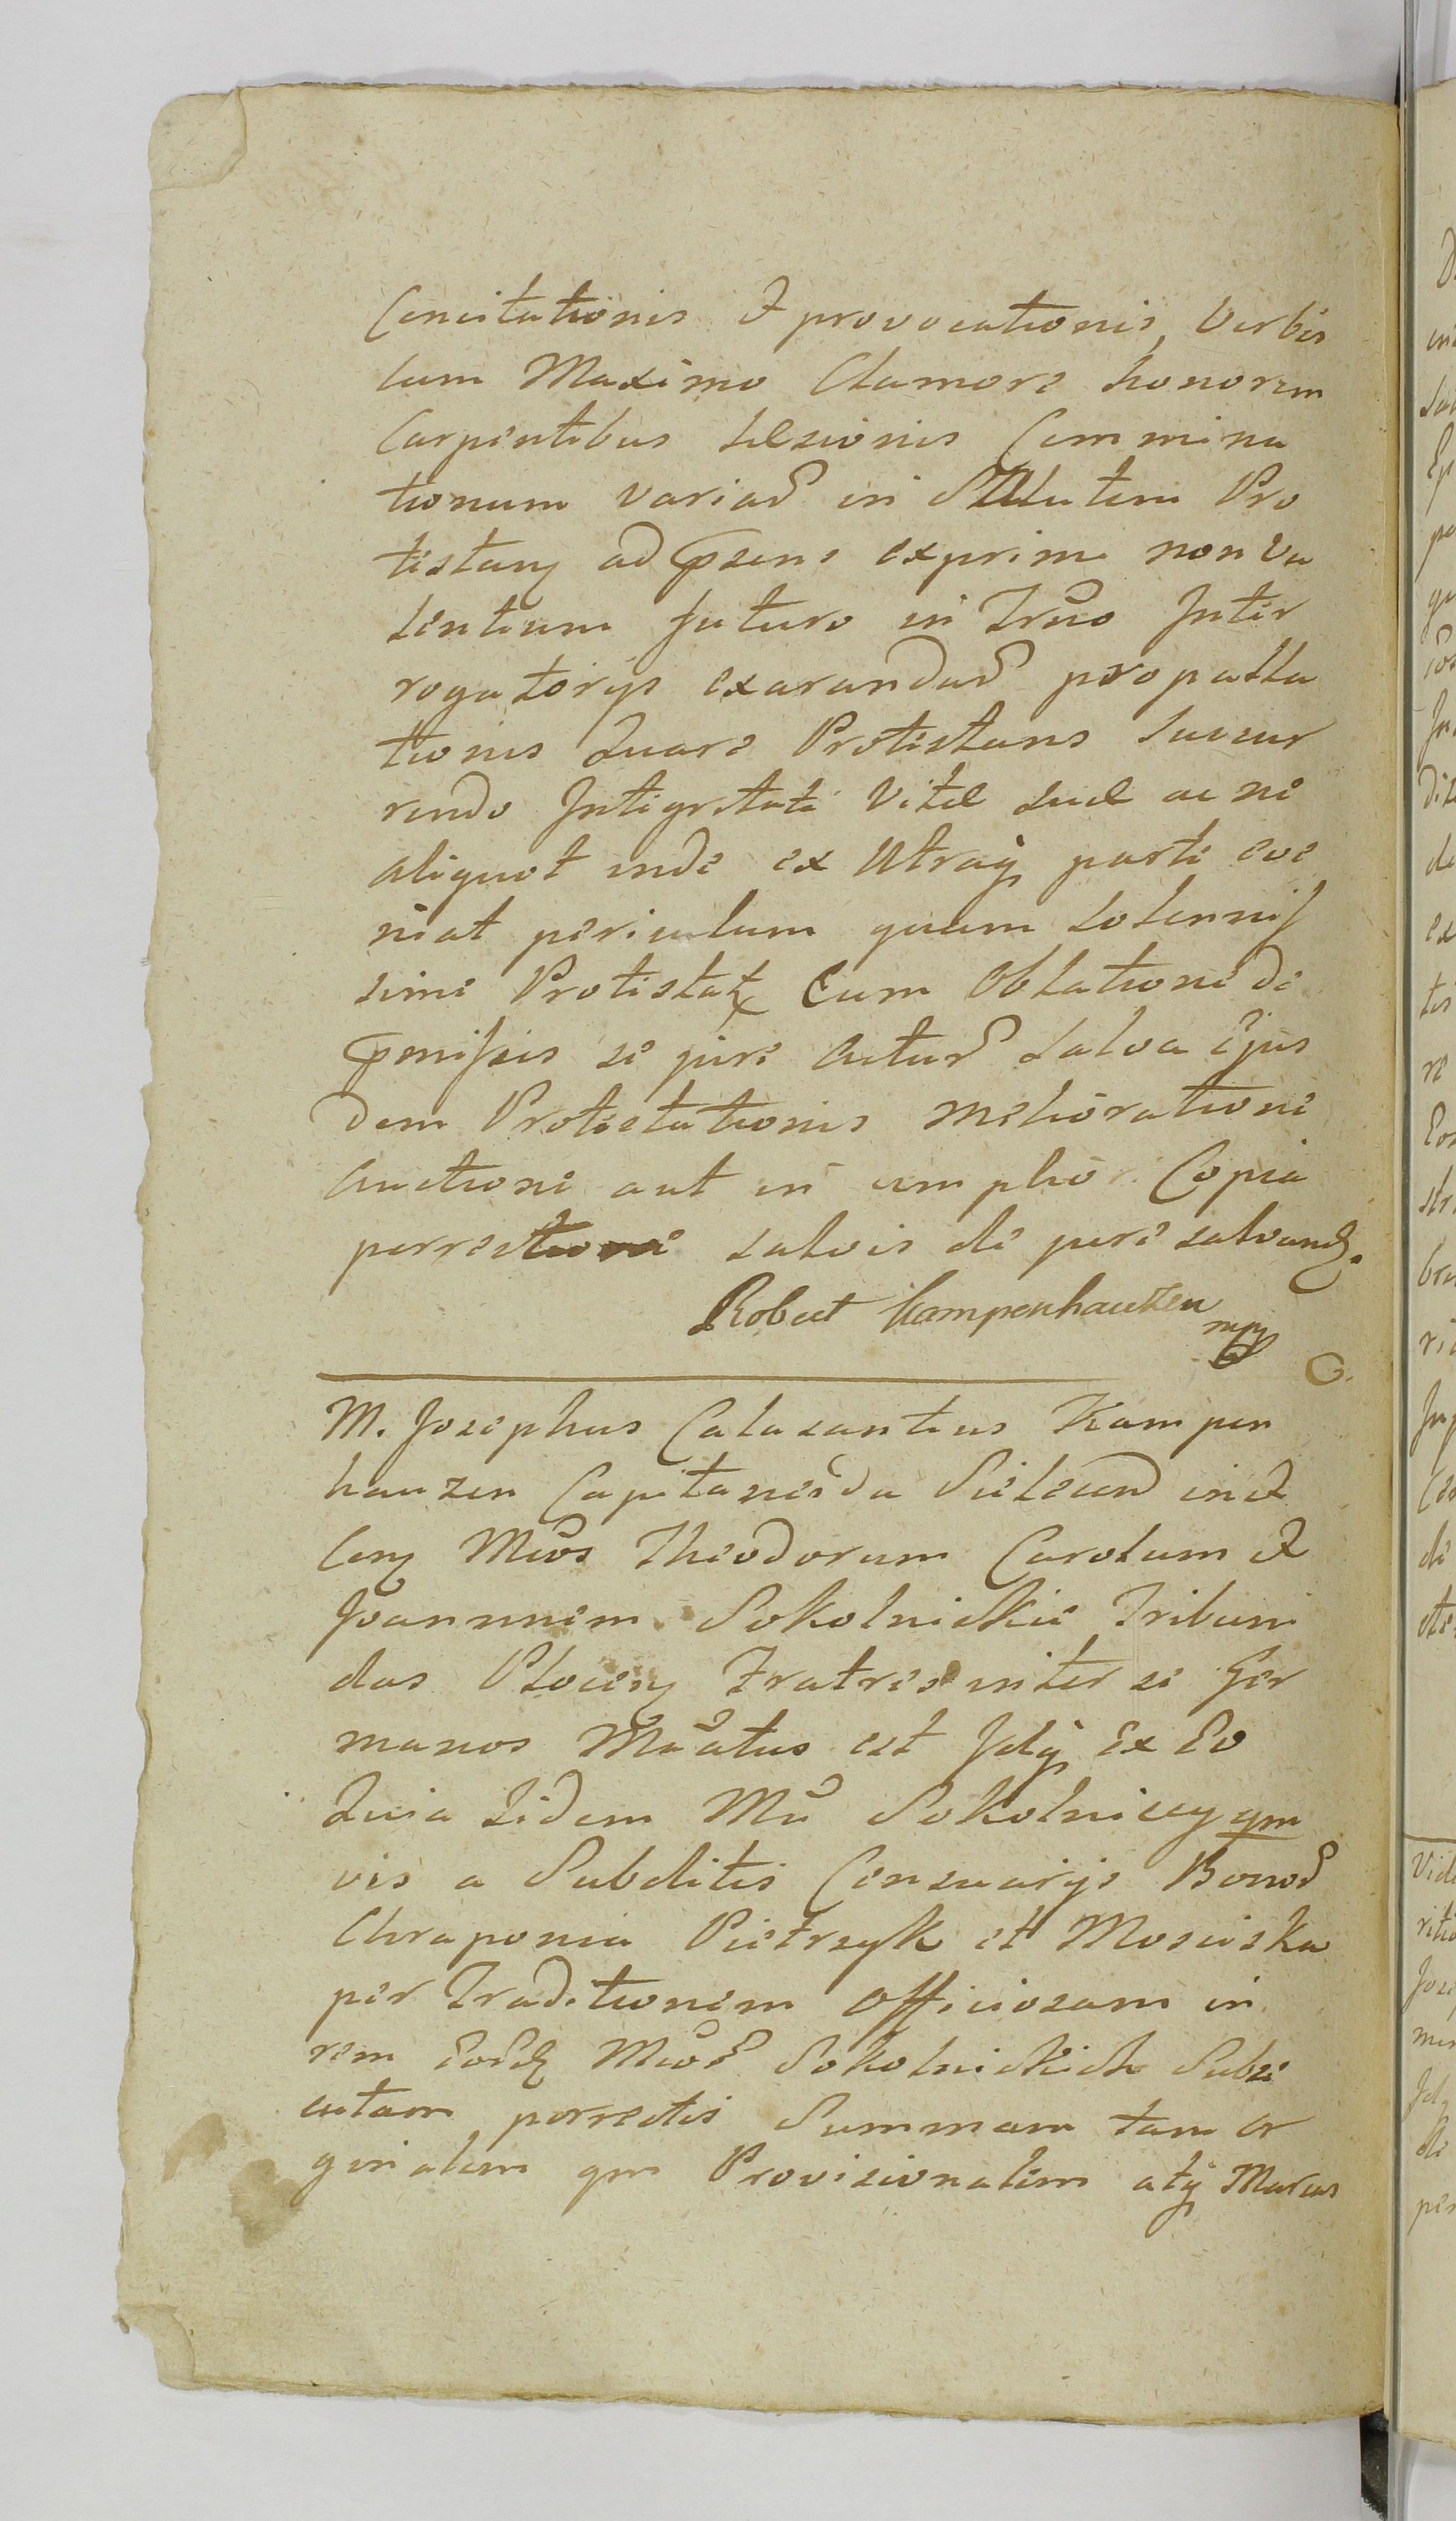 Concitationis et provocationis, verbis
cum Maximo Clamore honorem
Carpentibus Lesionis Commina
tionum variar in Salutem Pro
testanq ad psens exprimi non va
lentium futuro in Trno Inter
rogatorijs exarandar propalla
tionis Quare Protestans Succur
rendo Integritati Vitæ suæ ac ne
aliquot inde ex Utraq parte eve
niat periculum quam solennis
sime Protestat Cum Oblatione de
pmissis se jure acturr Salva Ejus
dem Protestationis Melioratione
Auctione aut in ampliori Copia
porrectione salvis de jure salvand.
Robert Kampenhauzen
mpp
M. Josephus Calasantius Kampen
hauzen Capitaneida Sielecen in et
Conq Mcos Theodorum Carolum et
Joannnem Sokolnickie Tribuni
das Plocenq Fratres inter se Ger
manos Mtatus est Idq Ex Eo
Quia Iidem Mci Sokolniccy qm
vis a Subditis Censuarijs Bonor
Chraponia Pietrzyk et Mosciska
per Traditionem officiosam in
rem Eord Mcor Sokolnickich Subse
cutam porrectis Summam tam or
ginalem qm Provisionalem atq